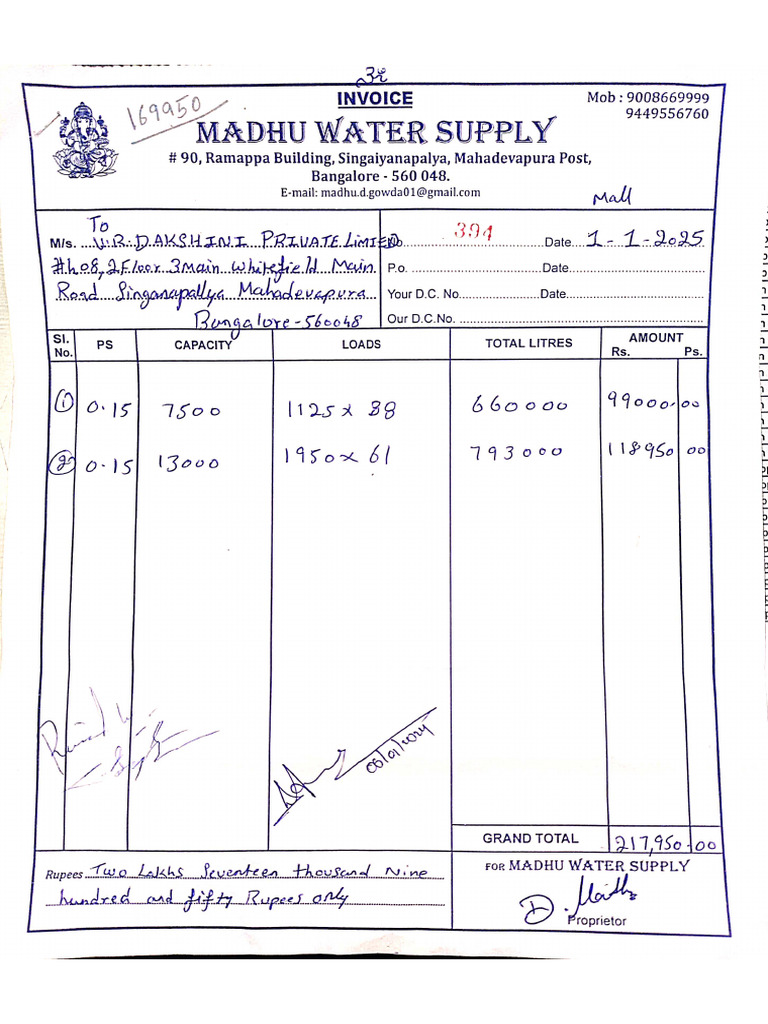 INVOICE
169950
Mob : 9008669999
9449556760
MADHU WATER SUPPLY
# 90, Ramappa Building, Singaiyanapalya, Mahadevapura Post,
Bangalore - 560 048.
E-mail: madhu.d.gowda01@gmail.com
Mall
To
M/s. V.R. DAKSHINI PRIVATE LIMIED
#h08, 2Floor 3Main Whitefield Main
Road Singanapallya Mahadevapura
Bangalore - 560048
No. 394 Date 1-1-2025
P.o. Date
Your D.C. No. Date
Our D.C.No.
Sl. No. PS CAPACITY LOADS TOTAL LITRES AMOUNT Rs. Ps.
1 0.15 7500 1125 x 88 660000 99000.00
2 0.15 13000 1950 x 61 793000 118950 00
06/01/2025
GRAND TOTAL 217,950.00
Rupees Two Lakhs Seventeen thousand Nine
hundred and fifty Rupees only
FOR MADHU WATER SUPPLY
Proprietor